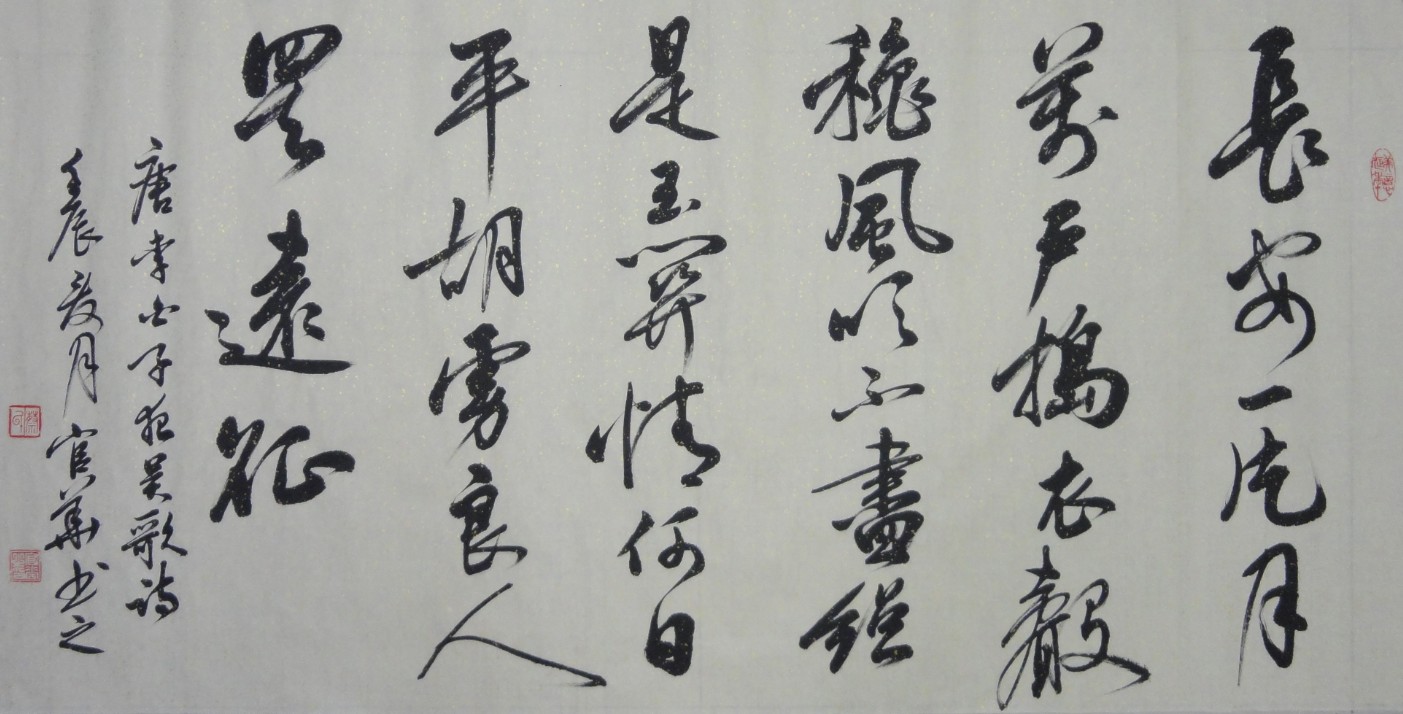 長安一片月
萬戶搗衣聲
穐風吹不盡總
是玉關情何日
平胡虜良人
罷遠征
唐李白子夜吴歌詩
壬辰夏月官華书之